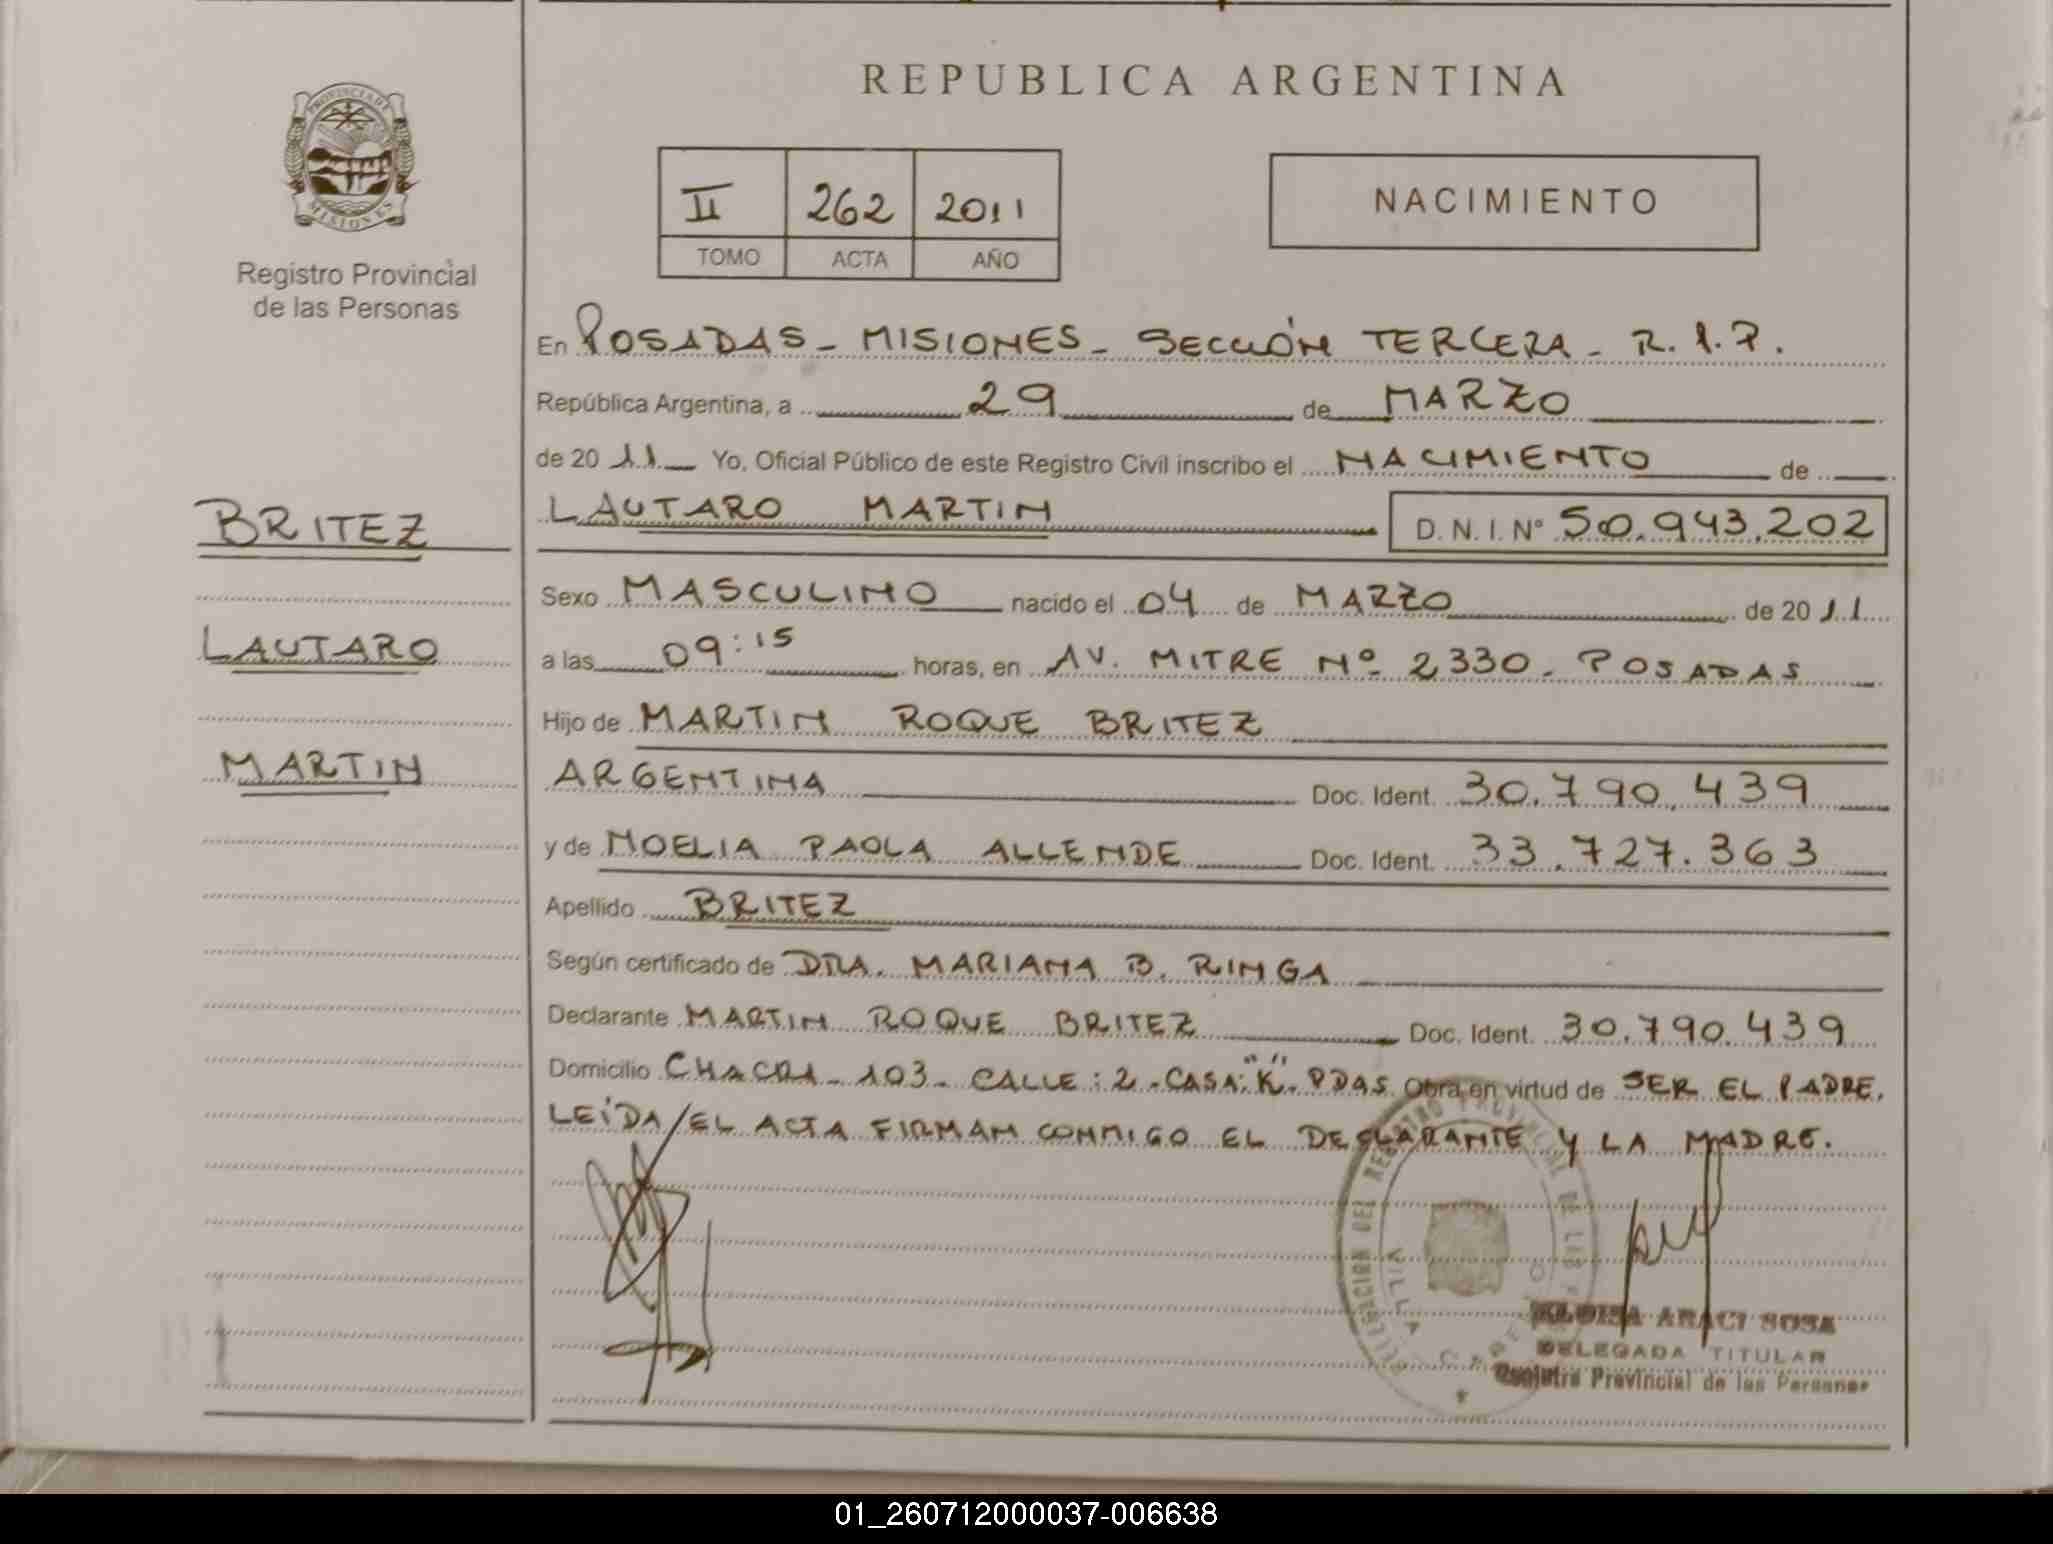 REPUBLICA ARGENTINA
PROVINCIA DE MISIONES
Registro Provincial
de las Personas
II 262 2011
TOMO ACTA AÑO
NACIMIENTO
En POSADAS - MISIONES - SECCIÓN TERCERA - R. P.
República Argentina, a 29 de MARZO
de 2011 Yo, Oficial Público de este Registro Civil inscribo el NACIMIENTO de
LAUTARO MARTIN D. N. I. Nº 50.943.202
BRITEZ
LAUTARO
MARTIN
Sexo MASCULINO nacido el 04 de MARZO de 2011
a las 09:15 horas, en AV. MITRE Nº 2330 - POSADAS
Hijo de MARTIN ROQUE BRITEZ
ARGENTINA Doc. Ident. 30.790.439
y de NOELIA PAOLA ALLENDE Doc. Ident. 33.727.363
Apellido BRITEZ
Según certificado de DRA. MARIANA B. RINGA
Declarante MARTIN ROQUE BRITEZ Doc. Ident. 30.790.439
Domicilio CHACRA - 103 - CALLE: 2 - CASA: "K" - PDAS. Obra en virtud de SER EL PADRE.
LEÍDA EL ACTA FIRMAN CONMIGO EL DECLARANTE Y LA MADRE.
DELEGACION DEL REGISTRO PROVINCIAL DE LAS PERSONAS
VILLA CABELLO
ARACI SOSA
DELEGADA TITULAR
Registro Provincial de las Personas
01_260712000037-006638